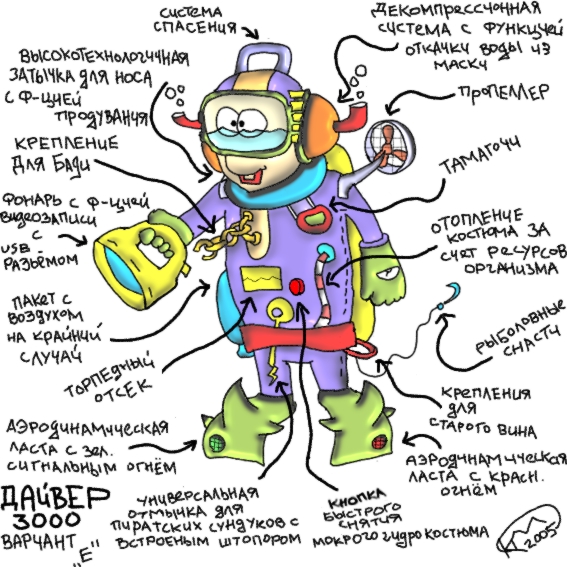 система
спасения
декомпрессионная
система с функцией
откачки воды из
маски
высокотехнологичная
затычка для носа
с ф-цией
продувания
пропеллер
крепление
для бади
тамагочи
фонарь с ф-цией
видеозаписи
с
usb-
разъёмом
отопление
костюма за
счёт ресурсов
организма
пакет с
воздухом
на крайний
случай
торпедный
отсек
рыболовные
снасти
крепления
для
старого вина
аэродинамическая
ласта с зел.
сигнальным огнём
аэродинамическая
ласта с красн.
огнём
ДАЙВЕР
3000
вариант
„Е"
универсальная
отмычка для
пиратских сундуков с
встроеным штопором
кнопка
быстрого
снятия
мокрого гидрокостюма
2005